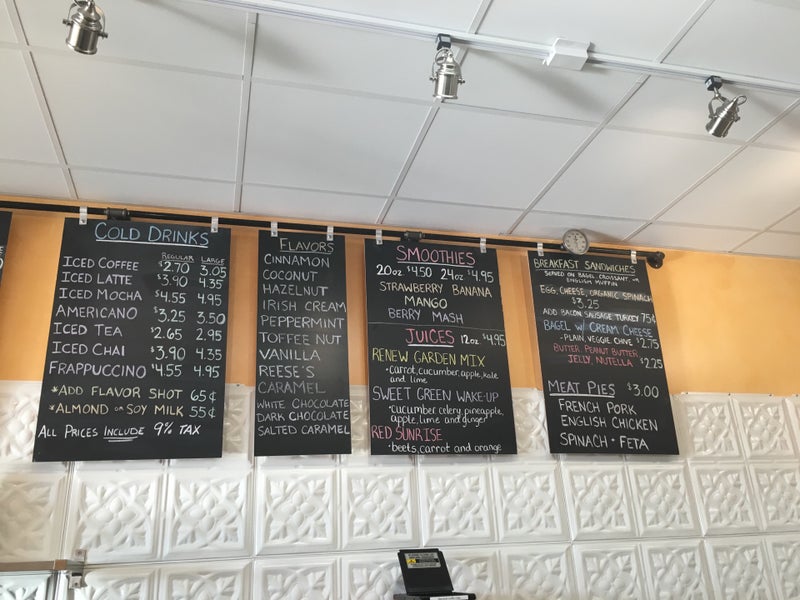 COLD DRINKS
REGULAR LARGE
ICED COFFEE $2.70 3.05
ICED LATTE $3.90 4.35
ICED MOCHA $4.55 4.95
AMERICANO $3.25 3.50
ICED TEA $2.65 2.95
ICED CHAI $3.90 4.35
FRAPPUCCINO $4.55 4.95
*ADD FLAVOR SHOT 65¢
*ALMOND OR SOY MILK 55¢
ALL PRICES INCLUDE 9% TAX
FLAVORS
CINNAMON
COCONUT
HAZELNUT
IRISH CREAM
PEPPERMINT
TOFFEE NUT
VANILLA
REESE'S
CARAMEL
WHITE CHOCOLATE
DARK CHOCOLATE
SALTED CARAMEL
SMOOTHIES
20oz $4.50 24oz $4.95
STRAWBERRY BANANA
MANGO
BERRY MASH
JUICES 12oz $4.95
RENEW GARDEN MIX
•carrot, cucumber, apple, kale
and lime
SWEET GREEN WAKE-UP
•cucumber, celery, pineapple,
apple, lime and ginger
RED SUNRISE
•beets, carrot and orange
BREAKFAST SANDWICHES
SERVED ON BAGEL, CROISSANT, OR
ENGLISH MUFFIN
EGG, CHEESE, ORGANIC SPINACH
$3.25
ADD BACON SAUSAGE TURKEY 75¢
BAGEL W/ CREAM CHEESE
-PLAIN, VEGGIE, CHIVE $2.75
BUTTER, PEANUT BUTTER,
JELLY, NUTELLA $2.25
MEAT PIES $3.00
FRENCH PORK
ENGLISH CHICKEN
SPINACH + FETA